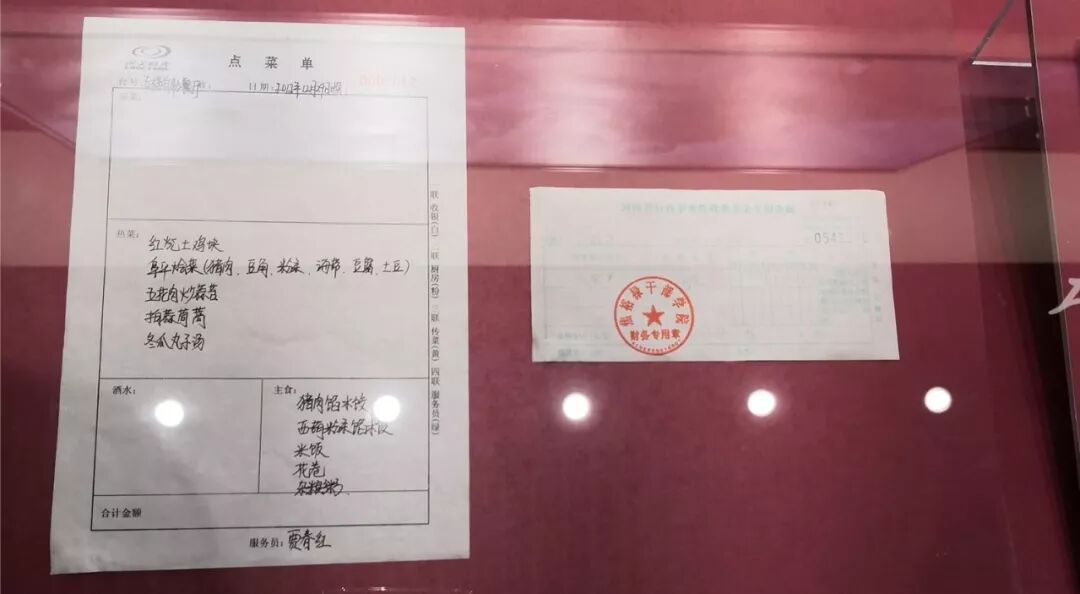 点菜单
日期：2012年12月29日
热菜：
红烧土鸡块
阜平烩菜(猪肉、豆角、粉条、海带、豆腐、土豆)
五花肉炒蒜苔
拍蒜茼蒿
冬瓜丸子汤
酒水：
主食：
猪肉馅水饺
西葫粉条馅水饺
米饭
花卷
杂粮粥
合计金额
服务员：贾春红
一联 收银(白) 二联 厨房(粉) 三联 传菜(黄) 四联 服务员(绿)
0543
焦裕禄干部学院
财务专用章